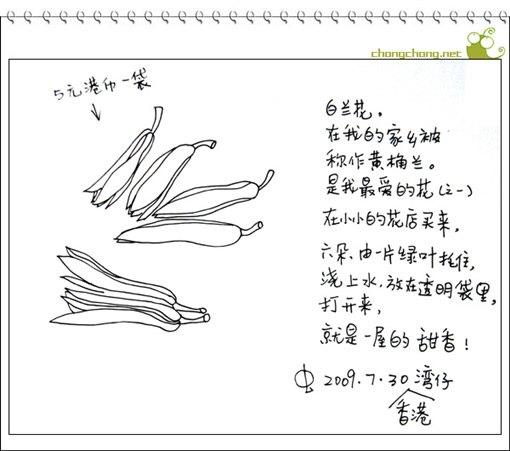 chongchong.net
5元港币一袋
白兰花。
在我的家乡被
称作黄桷兰。
是我最爱的花(之一)
在小小的花店买来,
六朵、由一片绿叶托住,
浇上水,放在透明袋里,
打开来,
就是一屋的甜香!
2009.7.30 湾仔
香港